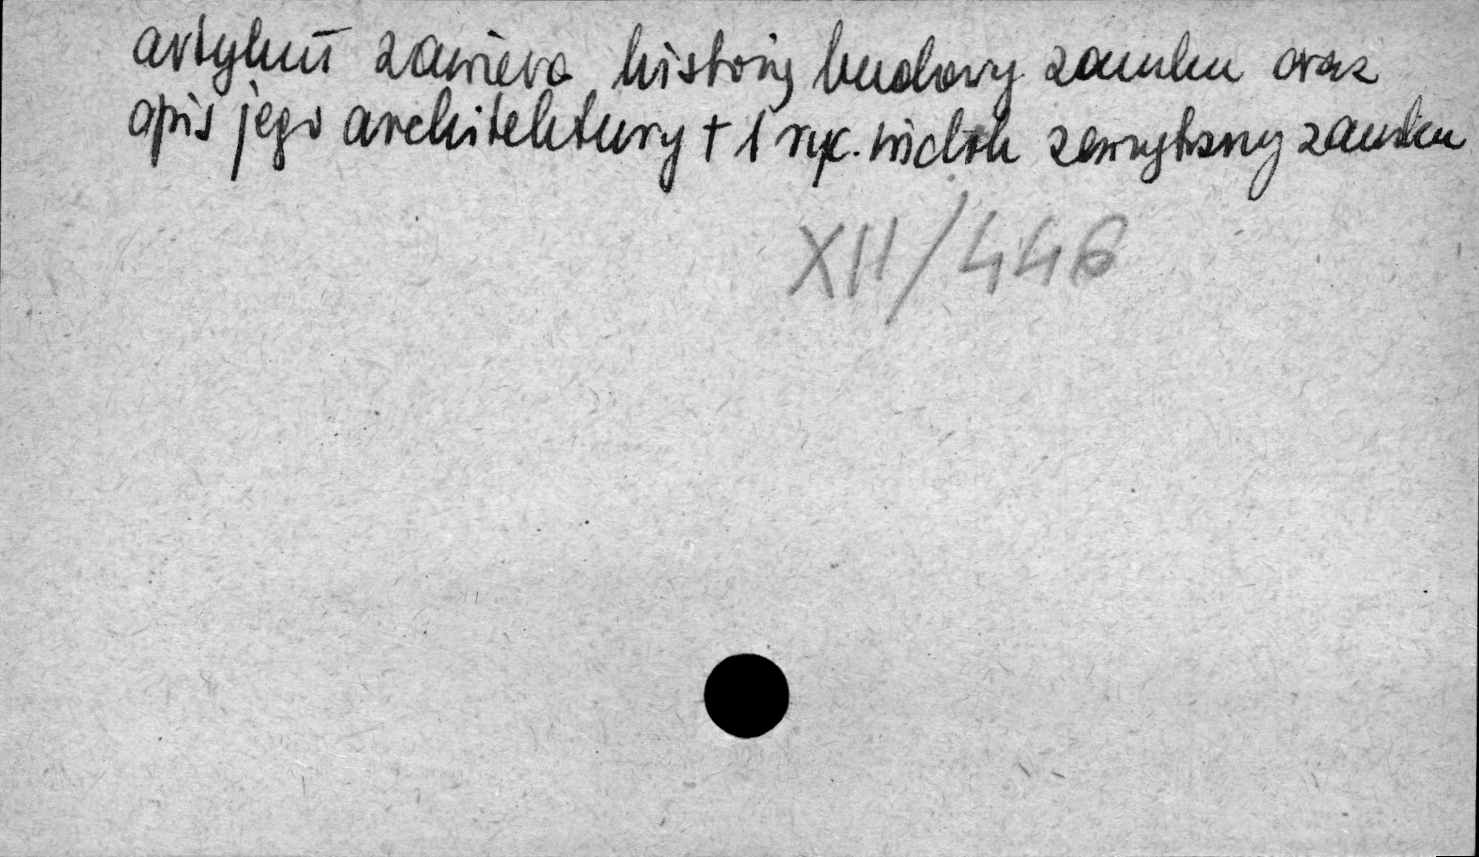 artykuł zawiera historię budowy zamku oraz
opis jego architektury + 1 ryc. widok zewnętrzny zamku
XII/446